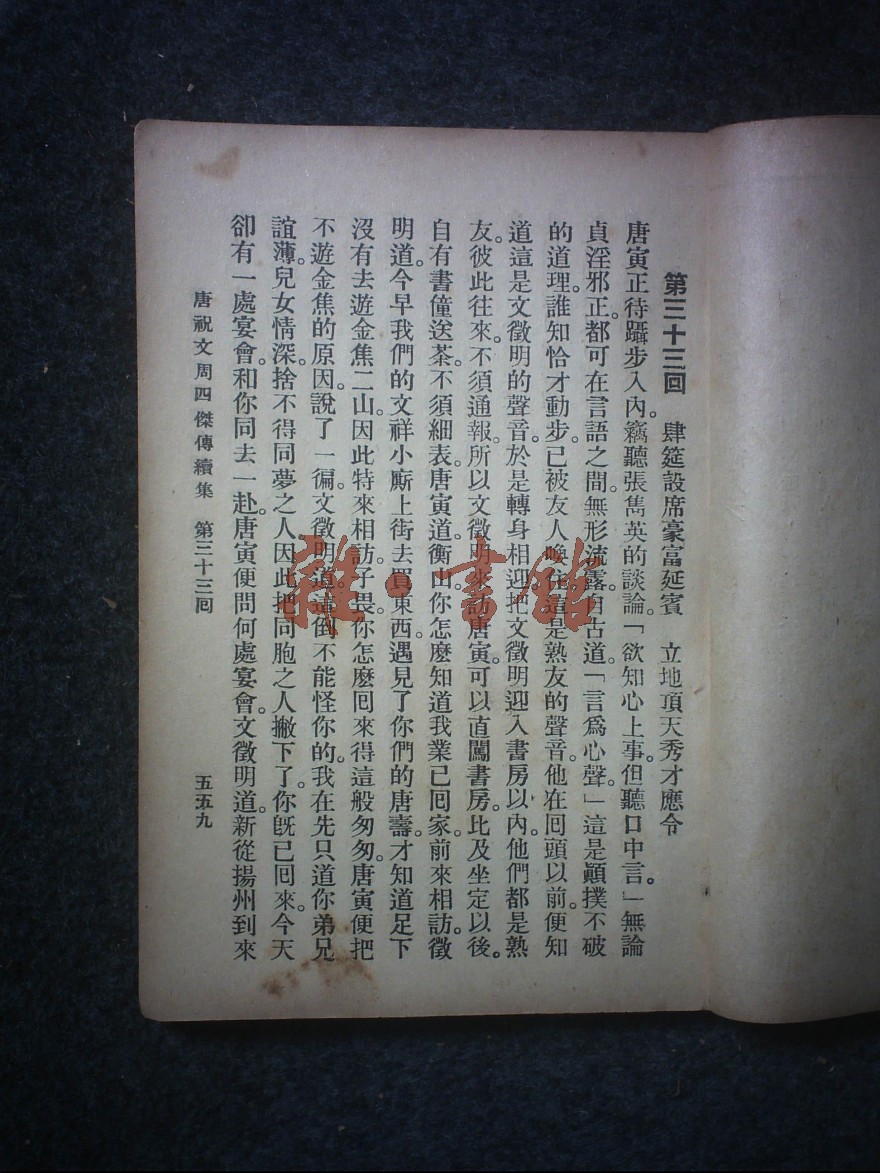 第三十三回　肆筵設席豪富延賓　立地頂天秀才應令
唐寅正待躡步入內。竊聽張雋英的談論「欲知心上事。但聽口中言。」無論
貞淫邪正。都可在言語之間。無形流露。自古道。「言爲心聲。」這是顚撲不破
的道理。誰知恰才動步。已被友人喚住。這是熟友的聲音。他在回頭以前。便知
道這是文徵明的聲音。於是轉身相迎。把文徵明迎入書房以內。他們都是熟
友。彼此往來。不須通報。所以文徵明來訪唐寅。可以直闖書房。比及坐定以後。
自有書僮送茶。不須細表。唐寅道。衡山。你怎麼知道我業已回家。前來相訪。徵
明道。今早我們的文祥小廝上街去買東西。遇見了你們的唐壽。才知道足下
沒有去遊金焦二山。因此特來相訪。子畏。你怎麼回來得這般匆匆。唐寅便把
不遊金焦的原因。說了一徧。文徵明道。這倒不能怪你的。我在先只道你弟兄
誼薄。兒女情深。捨不得同夢之人。因此把同胞之人撇下了。你旣已回來。今天
卻有一處宴會。和你同去一赴。唐寅便問何處宴會。文徵明道。新從揚州到來
唐祝文周四傑傳續集　第三十三回　五五九
雜·書館